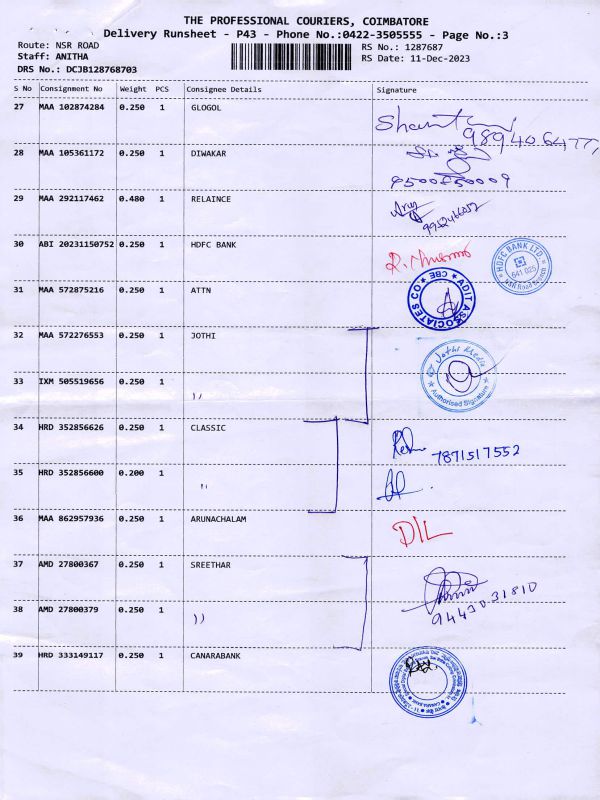 THE PROFESSIONAL COURIERS, COIMBATORE
Delivery Runsheet - P43 - Phone No.:0422-3505555 - Page No.:3
Route: NSR ROAD RS No.: 1287687
Staff: ANITHA RS Date: 11-Dec-2023
DRS No.: DCJB128768703
S No Consignment No Weight PCS Consignee Details Signature
27 MAA 102874284 0.250 1 GLOGOL
989406477,
28 MAA 105361172 0.250 1 DIWAKAR
29 MAA 292117462 0.480 1 RELAINCE
9952466052
30 ABI 20231150752 0.250 1 HDFC BANK
HDFC BANK LTD.
641 025
31 MAA 572875216 0.250 1 ATTN
ADIT ASSOCIATES CO
CBE
32 MAA 572276553 0.250 1 JOTHI
Jothi Media
Authorised Signature
33 IXM 505519656 0.250 1 ''
34 HRD 352856626 0.250 1 CLASSIC
7871517552
35 HRD 352856600 0.200 1 ''
36 MAA 862957936 0.250 1 ARUNACHALAM
D/L
37 AMD 27800367 0.250 1 SREETHAR
94430 31810
38 AMD 27800379 0.250 1 ''
39 HRD 333149117 0.250 1 CANARABANK